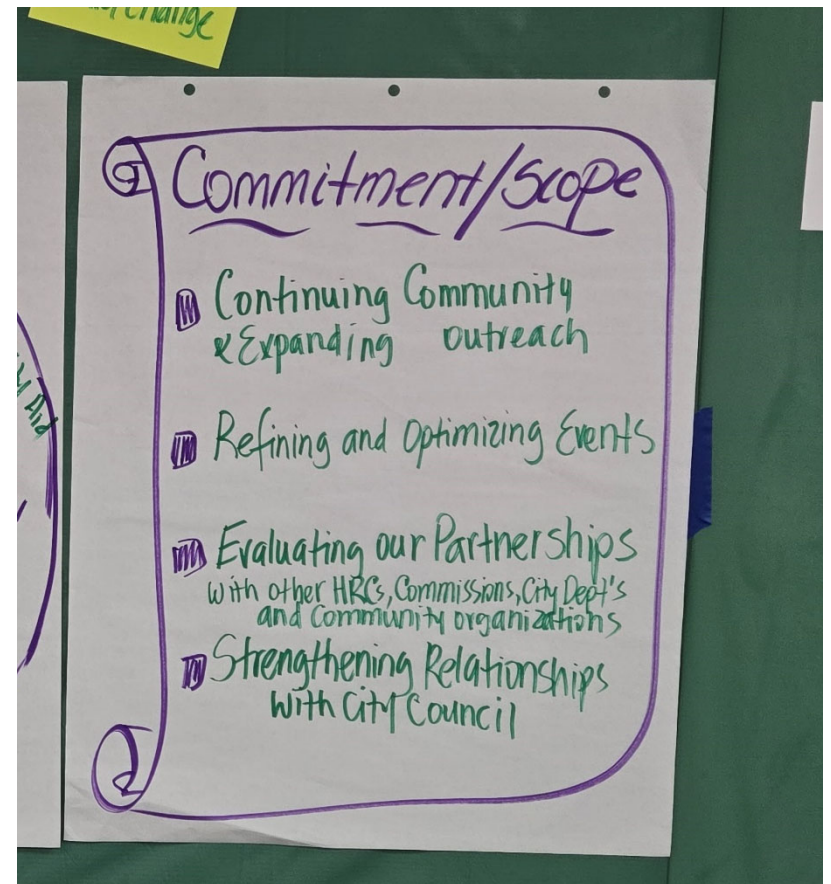 change
Aid
Commitment/Scope
Continuing Community
& Expanding outreach
Refining and Optimizing Events
Evaluating our Partnerships
with other HRCs, Commissions, City Dept's
and Community organizations
Strengthening Relationships
with City Council